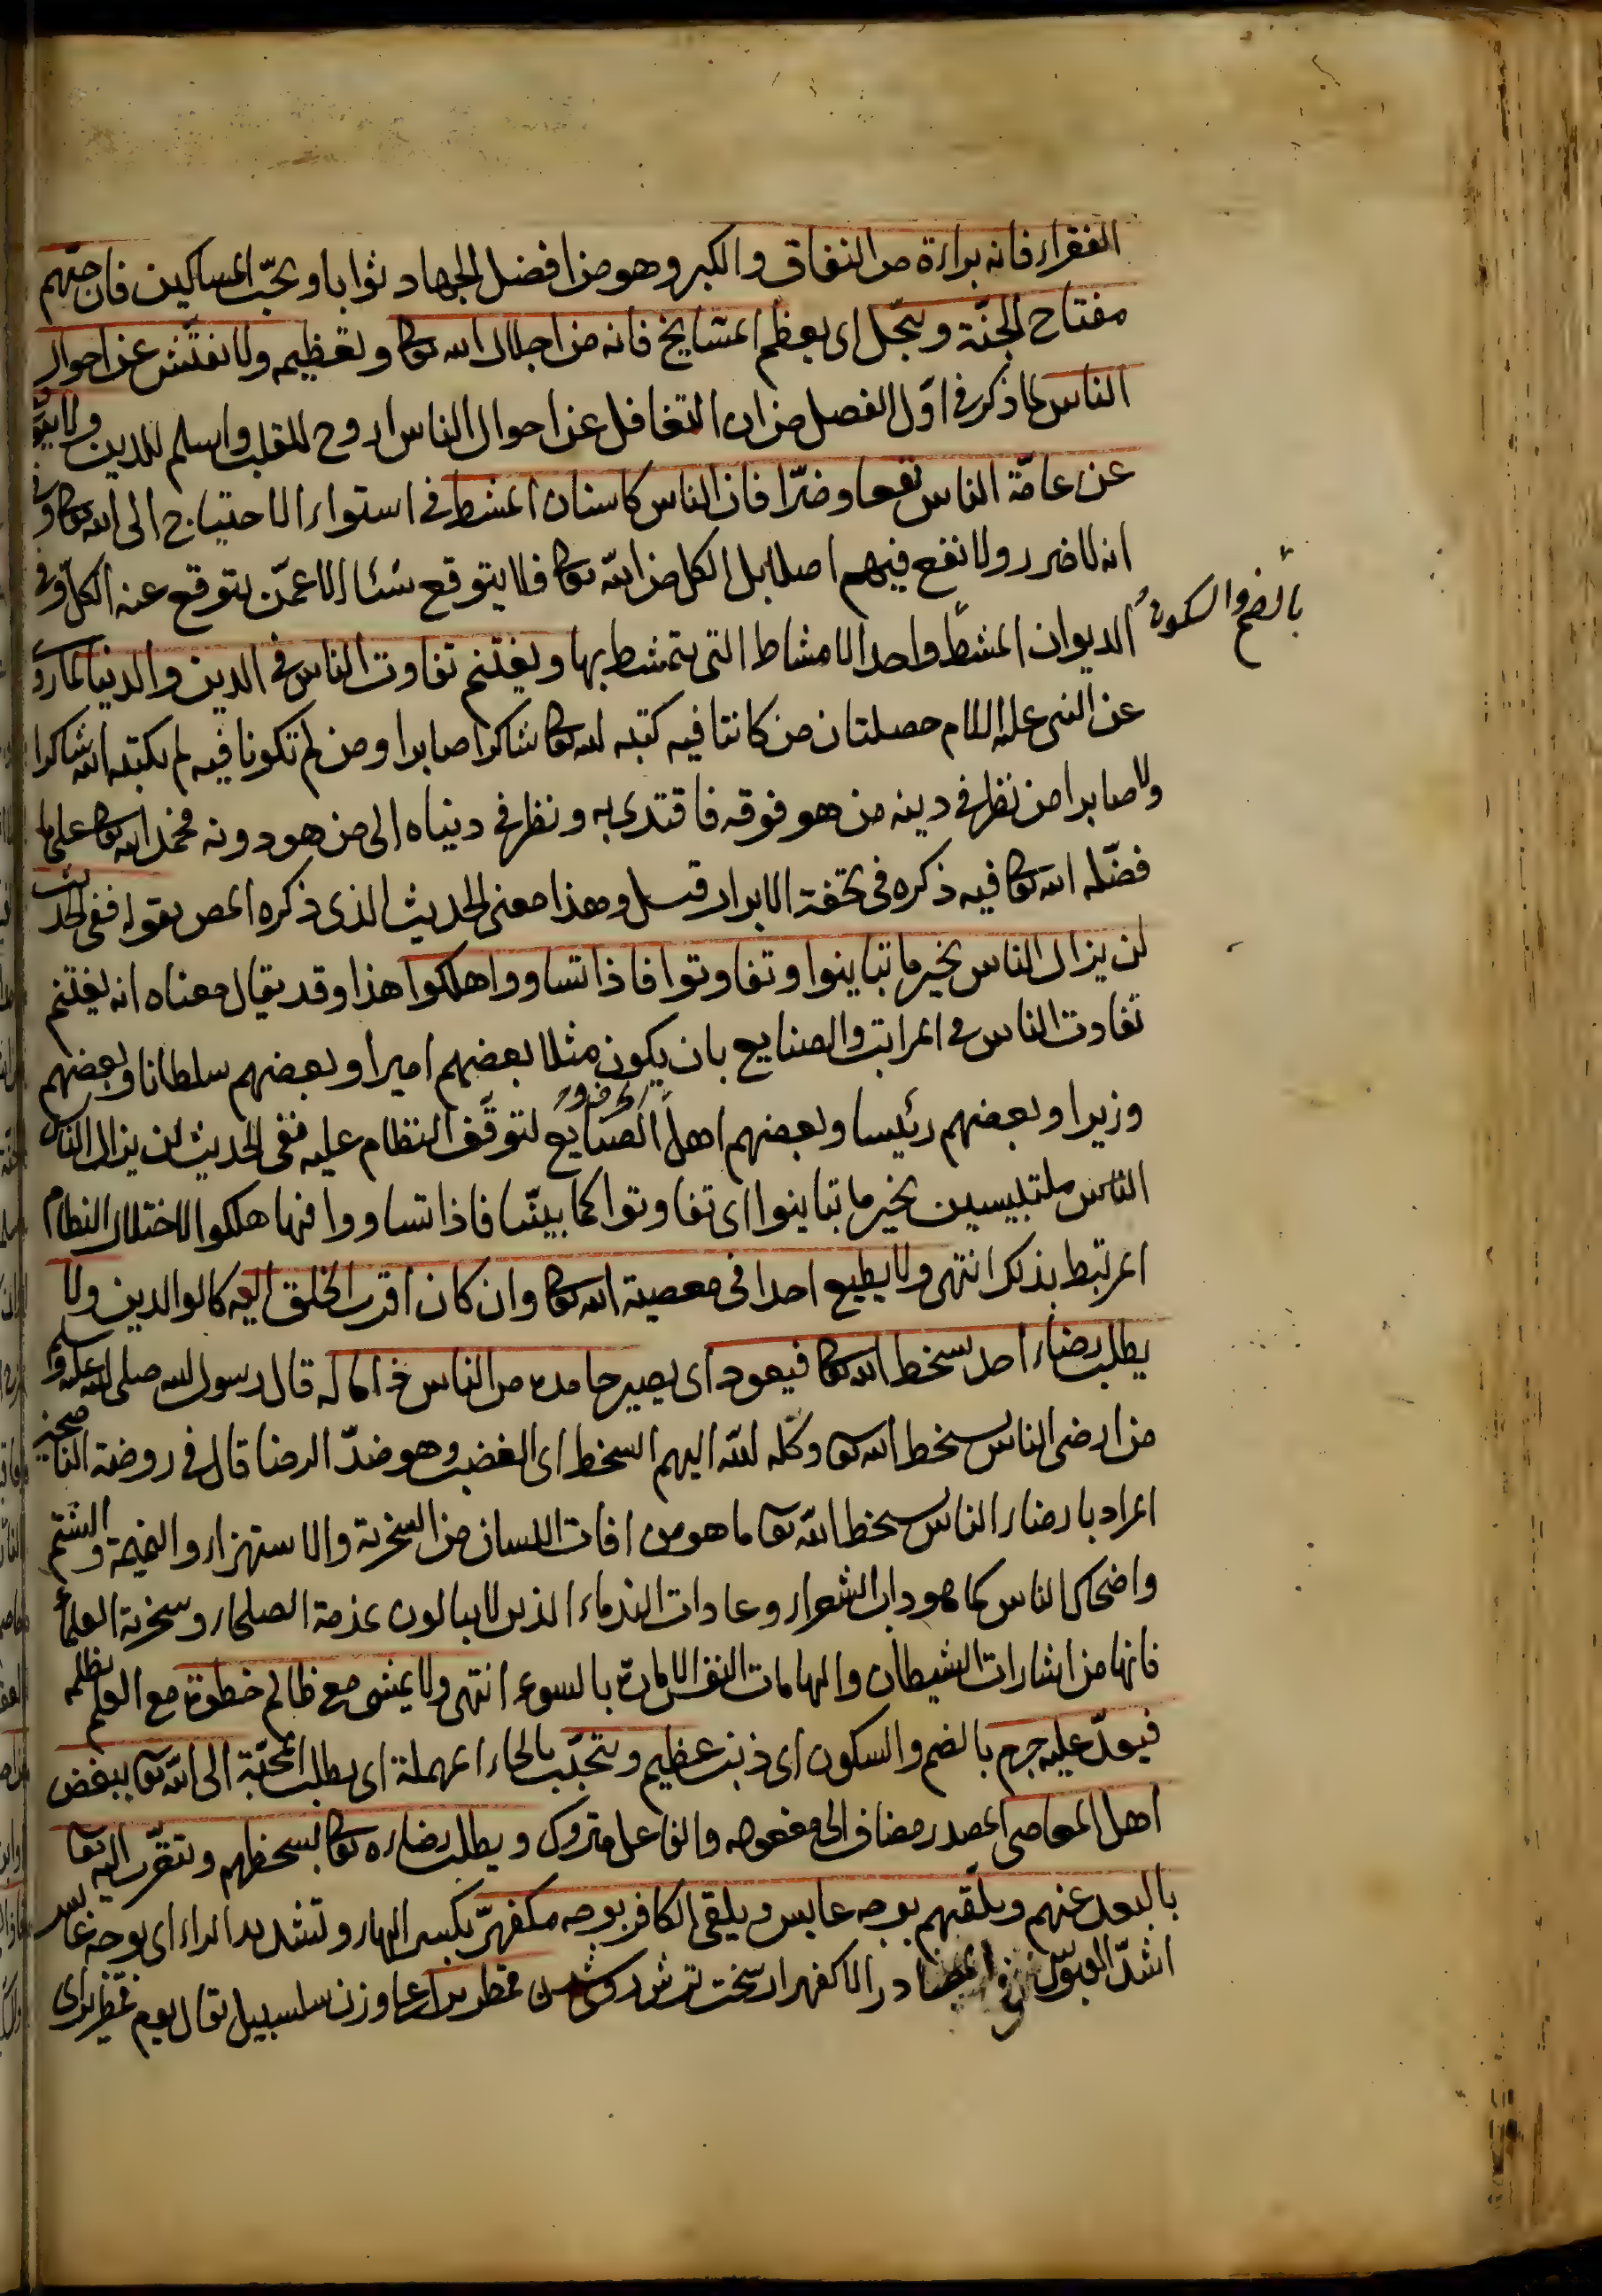 الفقراء فانه براءة من النفاق والكبر وهو من افضل الجهاد ثوابا ويحبّ المساكين فان حبّهم
مفتاح الجنّة ويبجّل اى يعظم المشايخ فانه من اجلال الله تعالى وتعظيمه ولا يفتّش عن احوال
الناس لما ذكر فى اوّل الفصل من ان التغافل عن احوال الناس اروح للقلب واسلم للدين ولا
عن عامّة الناس نفعا وضرّا فان الناس كاسنان المشط فى استواء الاحتياج الى الله تعالى وفى
انه لا ضرر ولا نفع فيهم اصلا بل الكل من الله تعالى فلا يتوقع شئا الا عمّن يتوقع عنه الكل وفى
بالضم والسكون
الديوان المشط واحد الامشاط التى يتمشط بها ويغتنم تفاوت الناس فى الدين والدنيا لما روى
عن النبى عليه السلام خصلتان من كانتا فيه كتبه الله تعالى شاكرا صابرا ومن لم تكونا فيه لم يكتبه الله شاكرا
ولا صابرا من نظر فى دينه من هو فوقه فاقتدى به ونظر فى دنياه الى من هو دونه فحمد الله تعالى على ما
فضّله الله تعالى فيه ذكره فى تحفة الابرار قيل وهذا معنى الحديث الذى ذكره المص بقوله ففى الحديث
لن يزال الناس بخير ما تباينوا وتفاوتوا فاذا تساووا هلكوا هذا وقد يقال معناه انه يغتنم
تفاوت الناس فى المراتب والصنايع بان يكون مثلا بعضهم اميرا وبعضهم سلطانا وبعضهم
وزيرا وبعضهم رئيسا وبعضهم اهل الصنايع لتوقّف النظام عليه ففى الحديث لن يزال الناس
الناس ملتبسين بخير ما تباينوا اى تفاوتوا كما بيّنّا فاذا تساووا فيها هلكوا لاختلال النظام
المرتبط بذلك انتهى ولا يطيع احدا فى معصية الله تعالى وان كان اقرب الخلق اليه كالوالدين ولا
يطلب رضاء احد بسخط الله تعالى فيعود اى يصير حامده من الناس ذاما له قال رسول الله صلى الله عليه وسلم
من ارضى الناس بسخط الله تعالى وكله الله اليهم السخط اى الغضب وهو ضدّ الرضا قال فى روضة الناصحين
المراد بارضاء الناس بسخط الله تعالى ما هو من افات اللسان من السخرية والاستهزاء والنميمة والشتم
واضحاك الناس كما هو داب الشعراء وعادات الندماء الذين لا يبالون بمذمة الصلحاء وسخرية العلماء
فانها من اشارات الشيطان والهامات النفس الامارة بالسوء انتهى ولا يمشى مع ظالم خطوة مع العلم بظلمه
فيعدّ عليه جرم بالضم والسكون اى ذنب عظيم ويتحبّب بالحاء المهملة اى يطلب المحبّة الى الله تعالى ببغض
اهل المعاصى المصدر مضاف الى مفعوله والفاعل متروك ويطلب رضاءه تعالى بسخطهم ويتقرّب اليه تعالى
بالبعد عنهم ويلقيهم بوجه عابس ويلقى الكافر بوجه مكفهرّ بكسر الهاء وتشديد الراء اى بوجه عابس
اشدّ العبوس وفى المصادر الاكفهرار سخت ترش روى شدن قمطريرا على وزن سلسبيل يقال يوم قمطرير اى